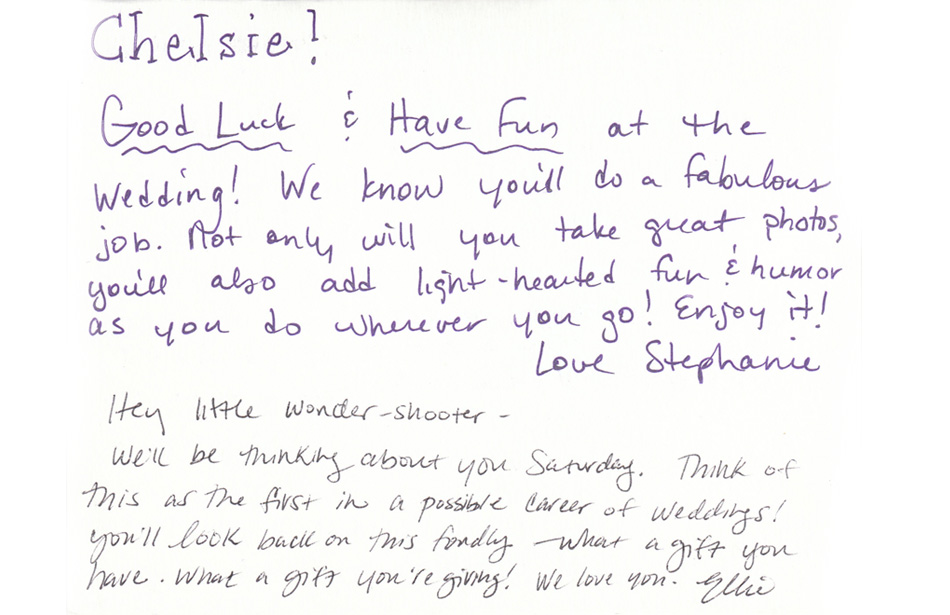 Chelsie!
Good Luck & Have Fun at the
Wedding! We know you'll do a fabulous
job. Not only will you take great photos,
you'll also add light-hearted fun & humor
as you do wherever you go! Enjoy it!
Love Stephanie
Hey little wonder-shooter -
We'll be thinking about you Saturday. Think of
this as the first in a possible career of weddings!
you'll look back on this fondly - what a gift you
have. What a gift you're giving! We love you. Ellie